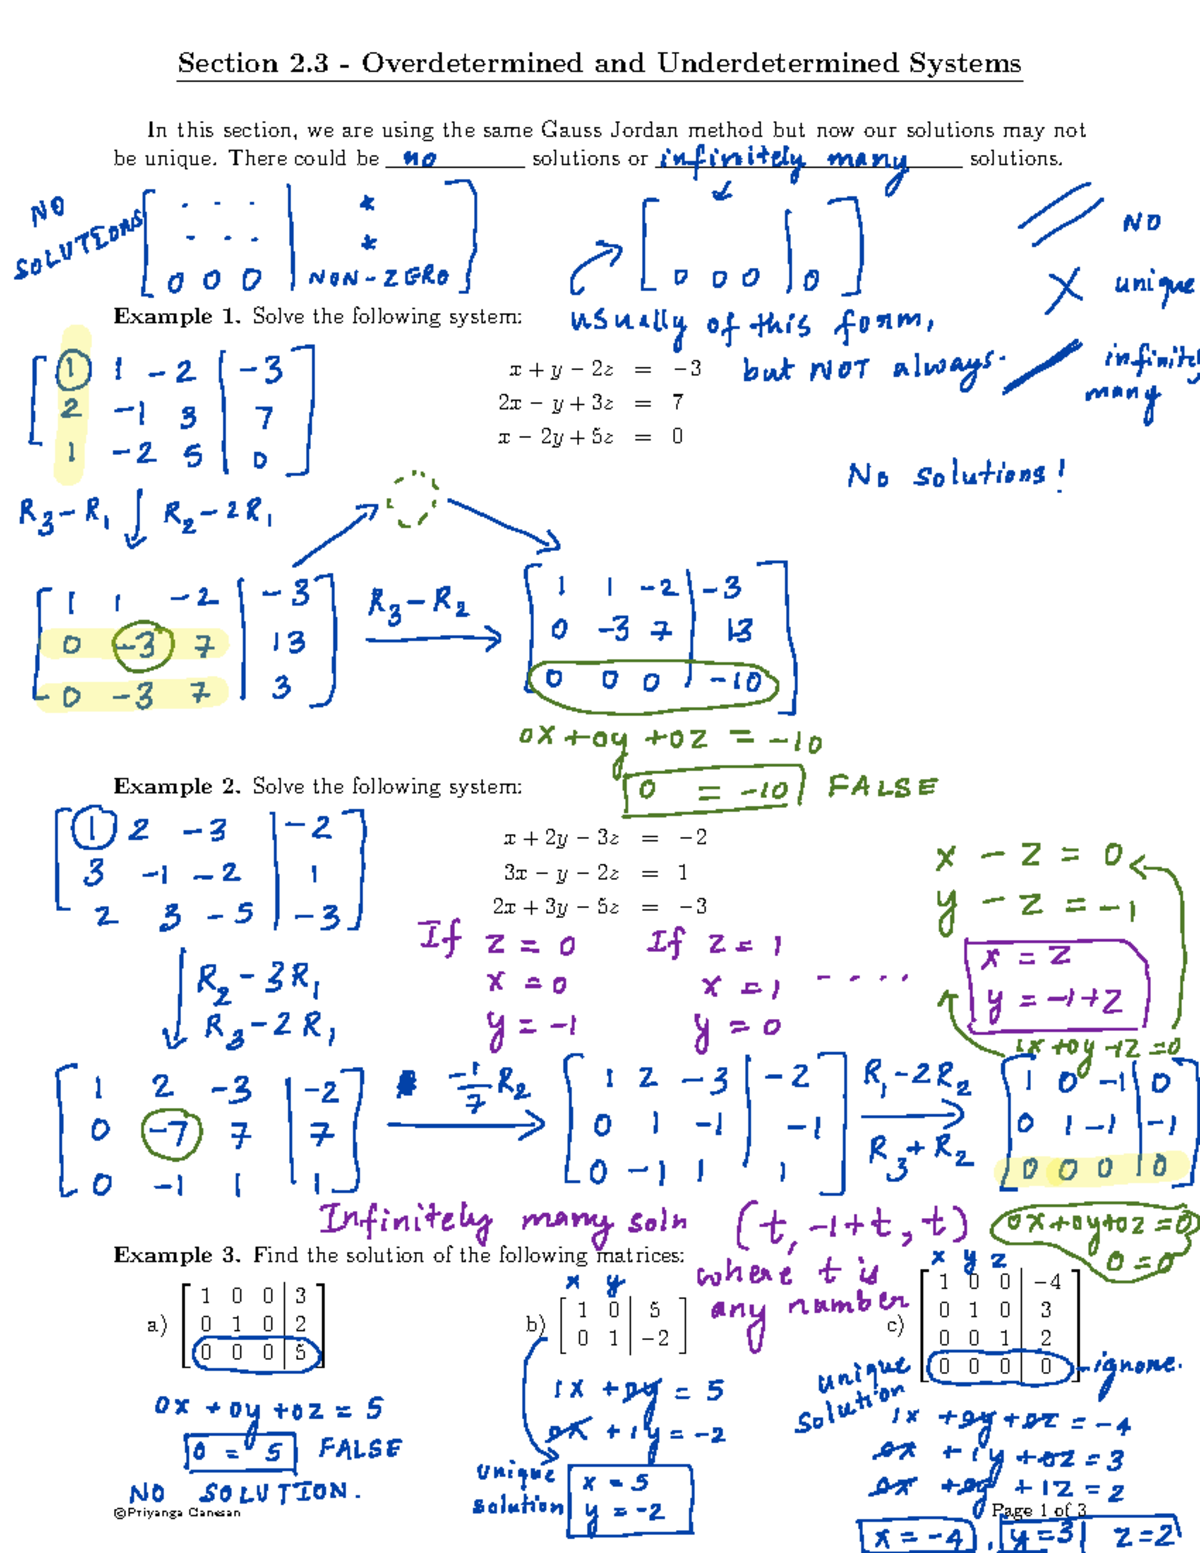 Section 2.3 - Overdetermined and Underdetermined Systems
In this section, we are using the same Gauss Jordan method but now our solutions may not
be unique. There could be no solutions or infinitely many solutions.
NO
SOLUTIONS
. . . *
. . . *
0 0 0 | NON-ZERO
0 0 0 | 0
usually of this form,
but NOT always.
NO
unique
infinitely
many
Example 1. Solve the following system:
x + y − 2z = −3
2x − y + 3z = 7
x − 2y + 5z = 0
1 1 -2 | -3
2 -1 3 | 7
1 -2 5 | 0
No solutions!
R3-R1 ↓ R2-2R1
1 1 -2 | -3
0 -3 7 | 13
0 -3 7 | 3
R3-R2
1 1 -2 | -3
0 -3 7 | 13
0 0 0 | -10
0x+0y+0z = -10
0 = -10 FALSE
Example 2. Solve the following system:
x + 2y − 3z = −2
3x − y − 2z = 1
2x + 3y − 5z = −3
1 2 -3 | -2
3 -1 -2 | 1
2 3 -5 | -3
R2-3R1
R3-2R1
If z = 0
x = 0
y = -1
If z = 1
x = 1
y = 0
....
x - z = 0
y - z = -1
x = z
y = -1+z
1x+0y-1z=0
1 2 -3 | -2
0 -7 7 | 7
0 -1 1 | 1
-1/7 R2
1 2 -3 | -2
0 1 -1 | -1
0 -1 1 | 1
R1-2R2
R3+R2
1 0 -1 | 0
0 1 -1 | -1
0 0 0 | 0
Infinitely many soln (t, -1+t, t)
where t is
any number
0x+0y+0z=0
0=0
Example 3. Find the solution of the following matrices:
a)
1 0 0 | 3
0 1 0 | 2
0 0 0 | 5
0x + 0y + 0z = 5
0 = 5 FALSE
NO SOLUTION.
b)
x y
1 0 | 5
0 1 | −2
1x + 0y = 5
0x + 1y = -2
unique
solution
x = 5
y = -2
c)
x y z
1 0 0 | −4
0 1 0 | 3
0 0 1 | 2
0 0 0 | 0
ignore.
unique
solution
1x + 0y + 0z = -4
0x + 1y + 0z = 3
0x + 0y + 1z = 2
x = -4, y = 3 z = 2
©Priyanga Ganesan
Page 1 of 3